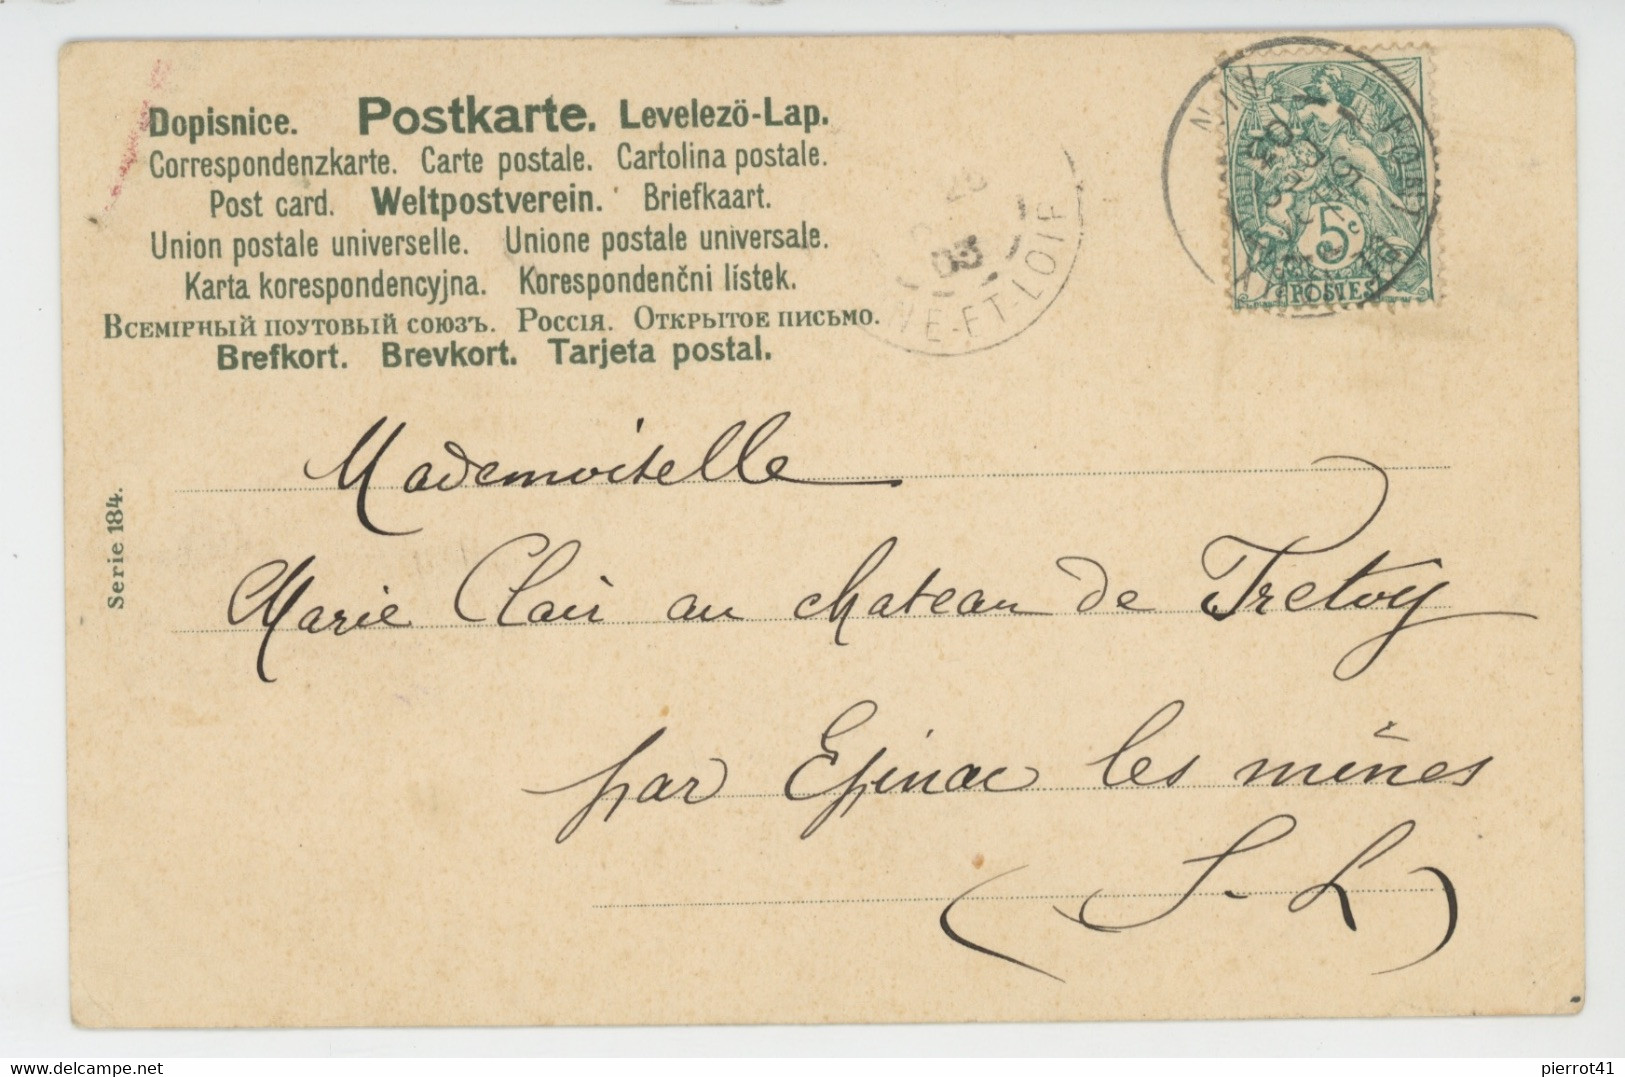 Dopisnice. Postkarte. Levelezö-Lap.
Correspondenzkarte. Carte postale. Cartolina postale.
Post card. Weltpostverein. Briefkaart.
Union postale universelle. Unione postale universale.
Karta korespondencyjna. Korespondenčni lístek.
Всемірный поутовый союзъ. Россія. Открытое письмо.
Brefkort. Brevkort. Tarjeta postal.
5c
POSTES
03
NE-ET-LOIRE
Serie 184.
Mademoiselle
Marie Clair au chateau de Tretoy
par Epinac les mines
(S.-L)
pierrot41